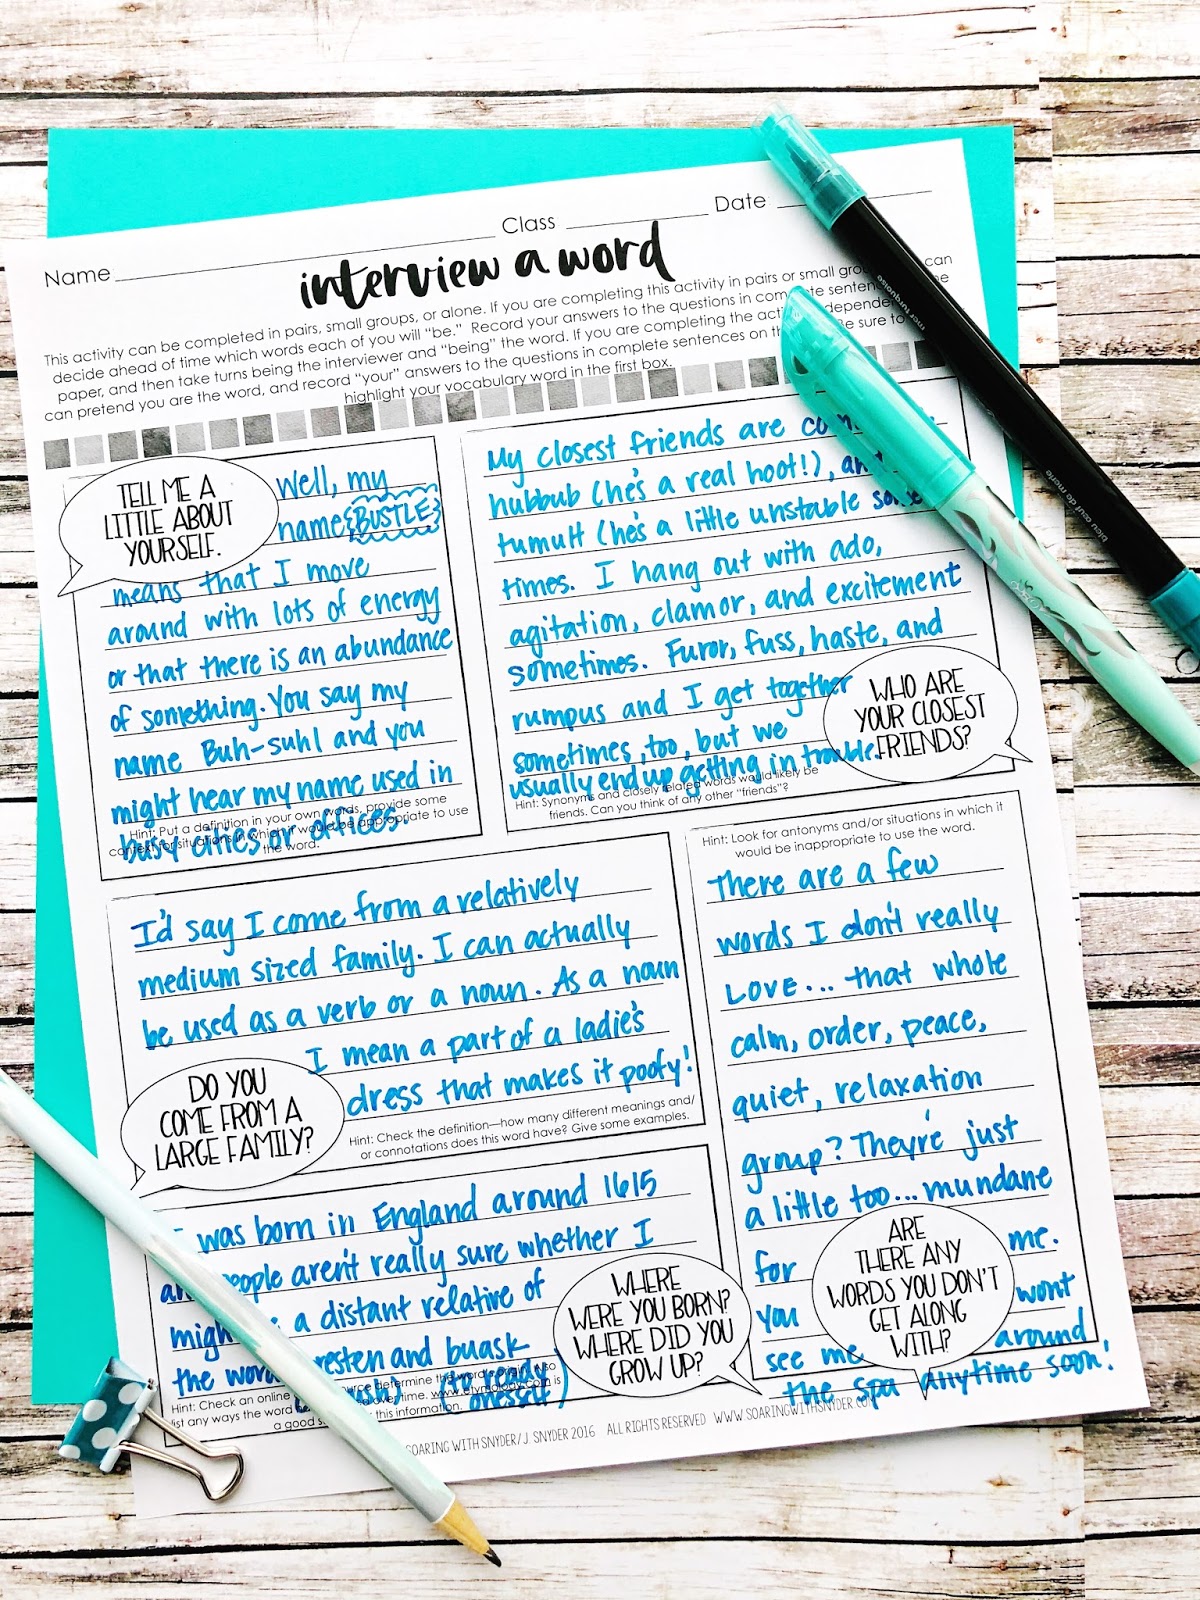 Name Class Date
interview a word
This activity can be completed in pairs, small groups, or alone. If you are completing this activity in pairs or small can
decide ahead of time which words each of you will “be.” Record your answers to the questions in
paper, and then take turns being the interviewer and “being” the word. If you are completing the
can pretend you are the word, and record “your” answers to the questions in complete sentences on Be sure to
highlight your vocabulary word in the first box.
TELL ME A
LITTLE ABOUT
YOURSELF.
Well, my
name {BUSTLE}
means that I move
around with lots of energy
or that there is an abundance
of something. You say my
name Buh-suhl and you
might hear my name used in
busy cities or offices.
Hint: Put a definition in your own words, provide some
context for situations in which it would be appropriate to use
the word.
My closest friends are
hubbub (he's a real hoot!), and
tumult (he's a little unstable
times. I hang out with ado,
agitation, clamor, and excitement
sometimes. Furor, fuss, haste, and
rumpus and I get together
sometimes, too, but we
usually end up getting in trouble.
WHO ARE
YOUR CLOSEST
FRIENDS?
Hint: Synonyms and closely related words would likely be
friends. Can you think of any other “friends”?
I'd say I come from a relatively
medium sized family. I can actually
be used as a verb or a noun. As a noun
I mean a part of a ladie's
dress that makes it poofy!
DO YOU
COME FROM A
LARGE FAMILY?
Hint: Check the definition—how many different meanings and/
or connotations does this word have? Give some examples.
Hint: Look for antonyms and/or situations in which it
would be inappropriate to use the word.
There are a few
words I don't really
LOVE... that whole
calm, order, peace,
quiet, relaxation
group? They're just
a little too... mundane
for me.
you wont
see me around
the spa anytime soon!
ARE
THERE ANY
WORDS YOU DON'T
GET ALONG
WITH?
I was born in England around 1615
people aren't really sure whether I
a distant relative of
the word and buask
oneself)
WHERE
WERE YOU BORN?
WHERE DID YOU
GROW UP?
Hint: Check an online determine the word's origin. Also
list any ways the word over time. www.etymology.com is
a good this information.
SOARING WITH SNYDER/ J. SNYDER 2016 ALL RIGHTS RESERVED WWW.SOARINGWITHSNYDER.COM
mer turquoise
bleu azul de mer